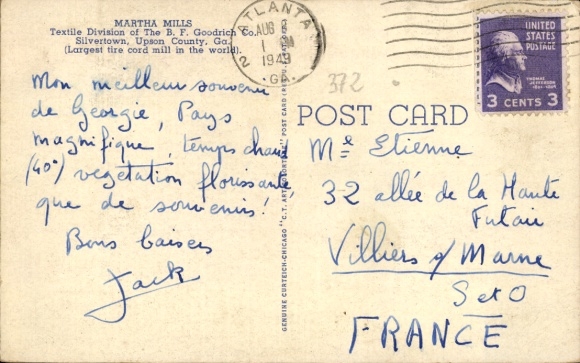 MARTHA MILLS
Textile Division of The B. F. Goodrich Co.
Silvertown, Upson County, Ga.
(Largest tire cord mill in the world).
ATLANTA
AUG
1
1949
2
GA.
UNITED
STATES
POSTAGE
THOMAS
JEFFERSON
3 CENTS 3
372
POST CARD
Mon meilleur souvenir
de Georgie, Pays
magnifique, temps chaud
(40°) vegetation florissante
que de souvenirs!
Bons baisers
Jack
GENUINE CURTEICH-CHICAGO "C.T. ART-COLORTONE" POST CARD (REG. U.S. PAT. OFF.)
Mle Etienne
32 allée de la Haute
Futaie
Villiers s/ Marne
S et O
FRANCE